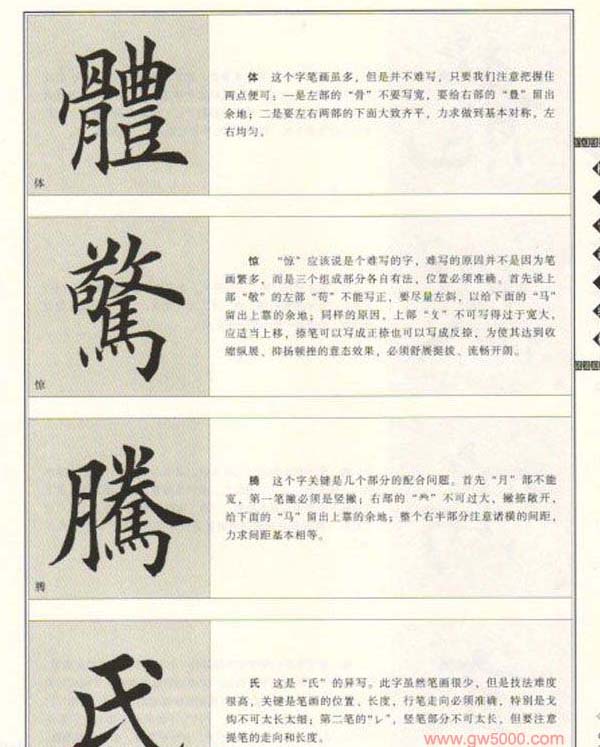 體
体
体 这个字笔画虽多，但是并不难写，只要我们注意把握住
两点便可：一是左部的“骨”不要写宽，要给右部的“豊”留出
余地；二是要左右两部的下面大致齐平，力求做到基本对称，左
右均匀。
驚
惊
惊 “惊”应该说是个难写的字，难写的原因并不是因为笔
画繁多，而是三个组成部分各自有法，位置必须准确。首先说上
部“敬”的左部“苟”不能写正，要尽量左斜，以给下面的“马”
留出上靠的余地；同样的原因，上部“攵”不可写得过于宽大，
应适当上移，捺笔可以写成正捺也可以写成反捺，为使其达到收
缩纵展、抑扬顿挫的意态效果，必须舒展挺拔、流畅开朗。
騰
腾
腾 这个字关键是几个部分的配合问题。首先“月”部不能
宽，第一笔撇必须是竖撇；右部的“龹”不可过大，撇捺敞开，
给下面的“马”留出上靠的余地；整个右半部分注意诸横的间距，
力求间距基本相等。
氏
氏 这是“氏”的异写。此字虽然笔画很少，但是技法难度
很高，关键是笔画的位置、长度，行笔走向必须准确，特别是戈
钩不可太长太细；第二笔的“レ”，竖笔部分不可太长，但要注意
提笔的走向和长度。
www.gw5000.com